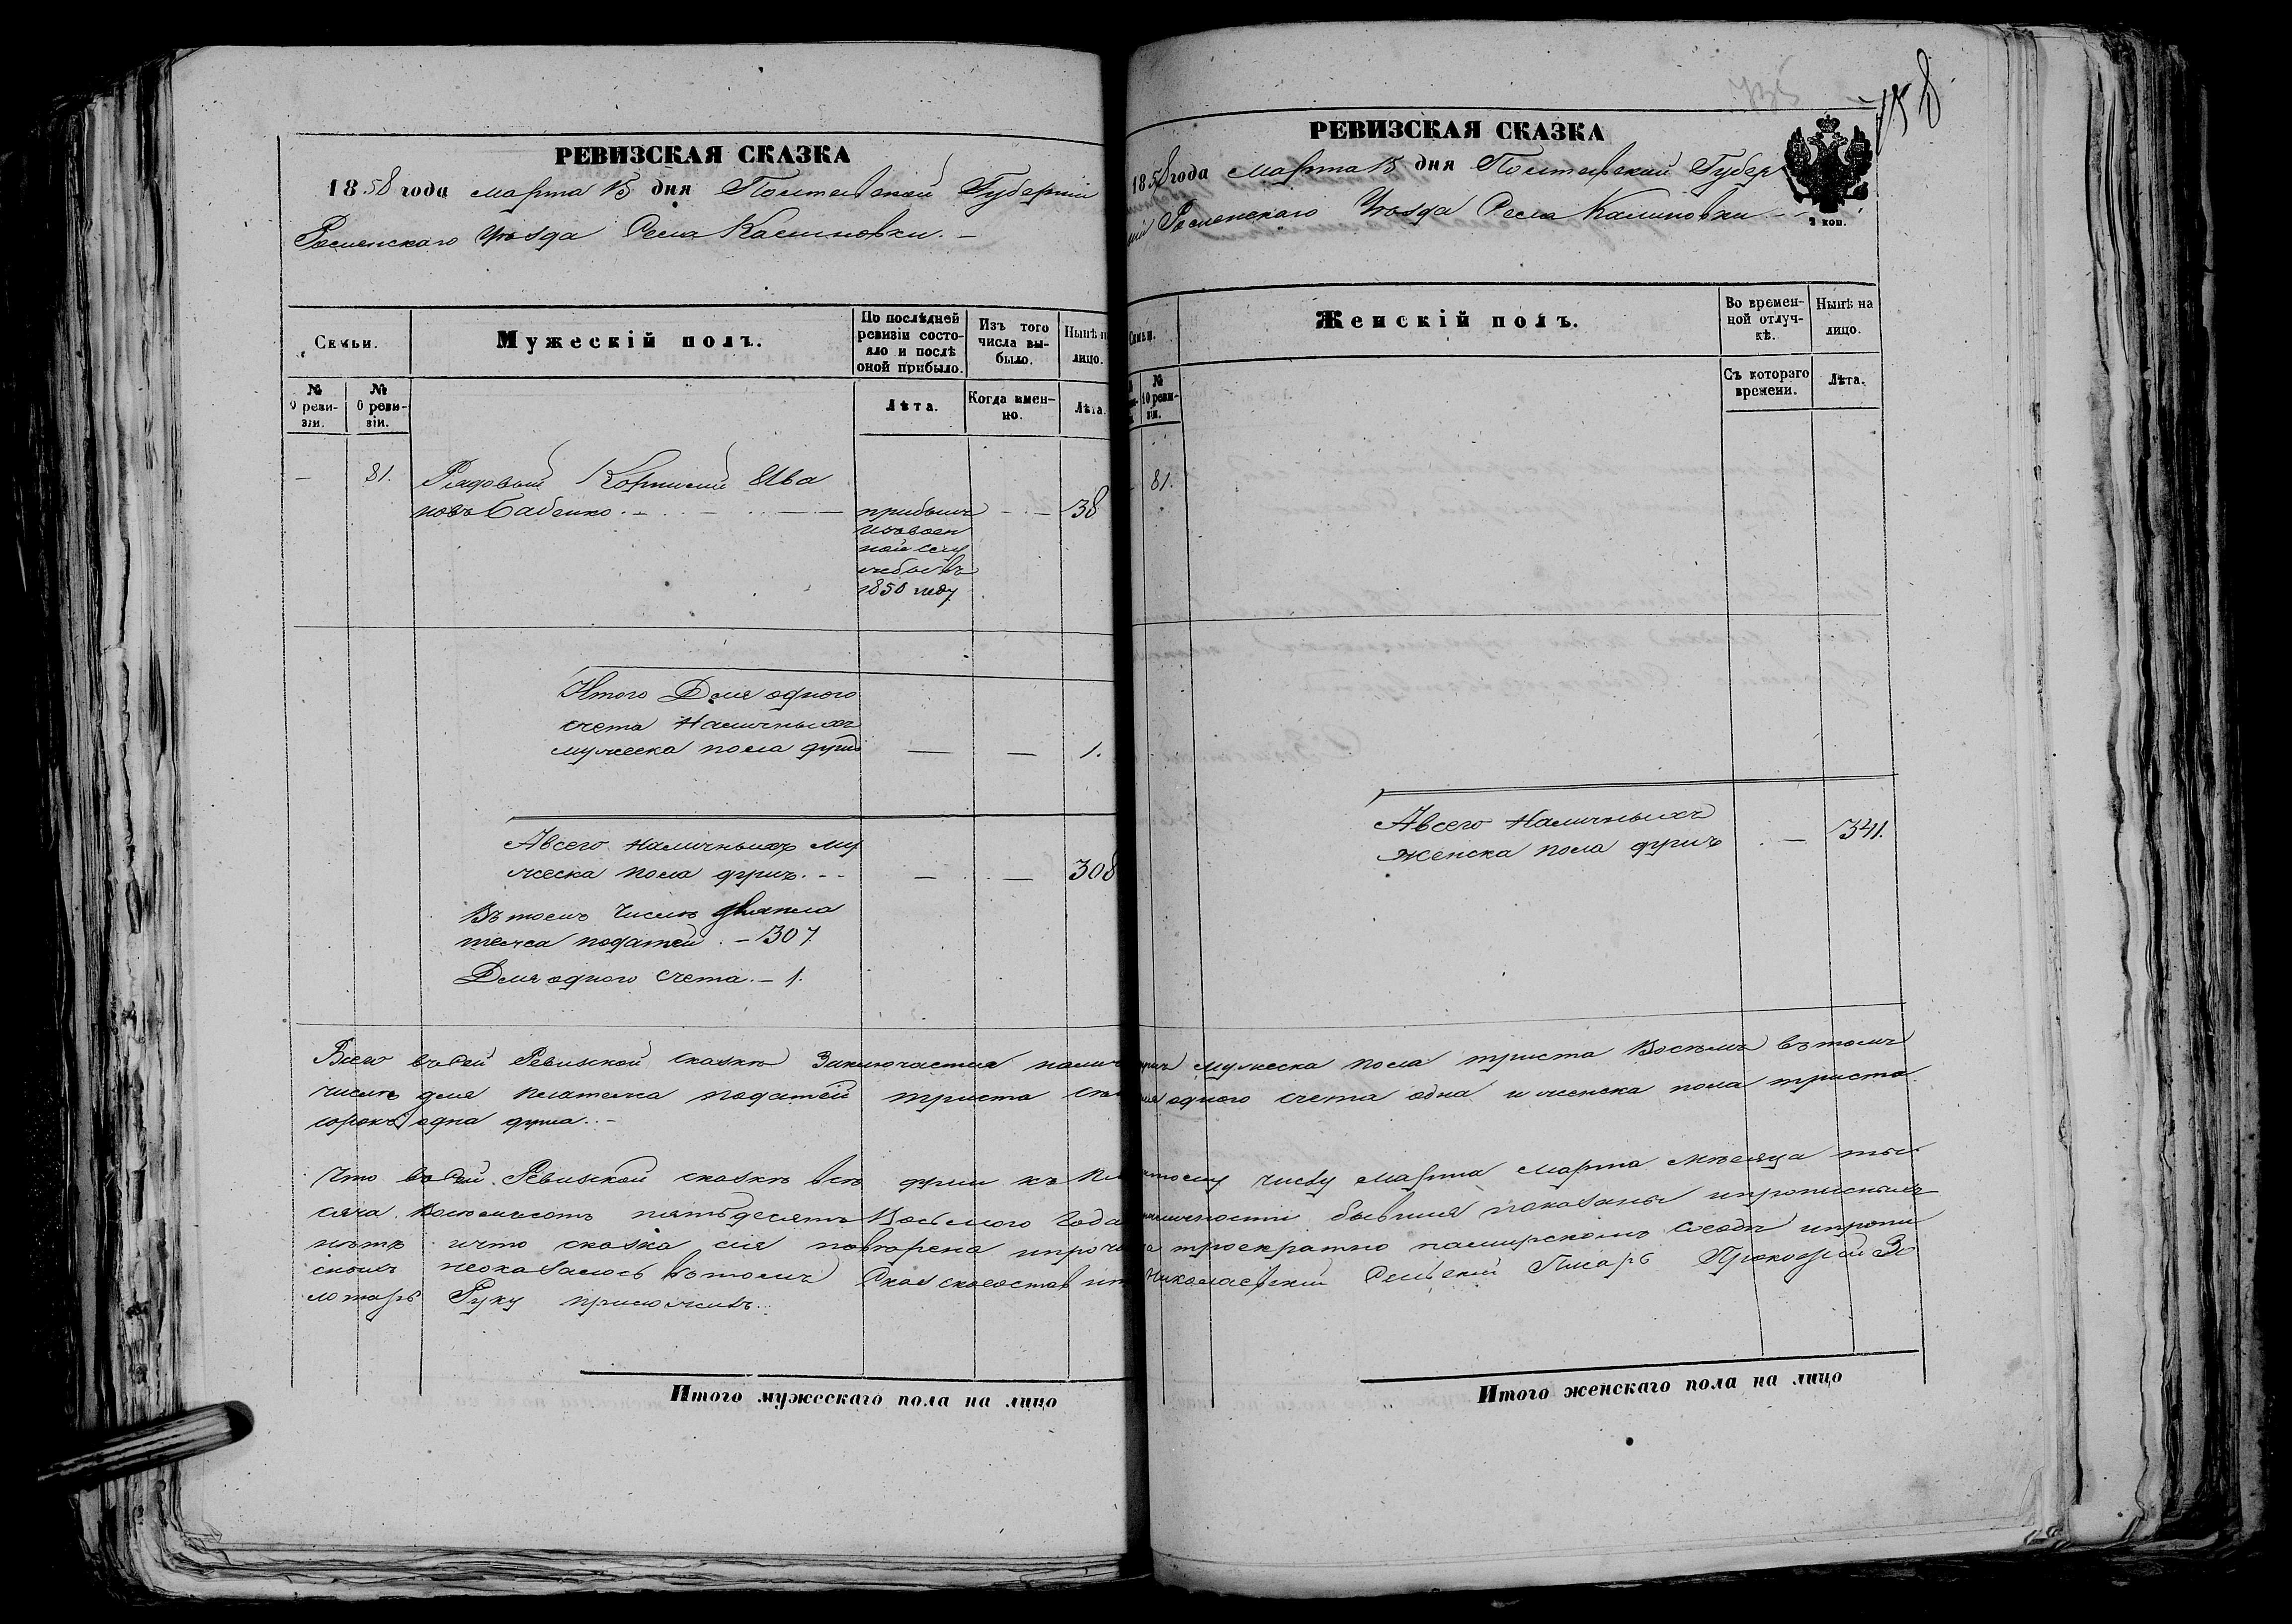 РЕВИЗСКАЯ СКАЗКА
1858 года марта 15 дня Полтавской Губерніи
Роменскаго Уѣзда Села Калиновки. –
Семьи.
Мужескій полъ.
По послѣдней ревизіи состояло и послѣ оной прибыло.
Изъ того числа выбыло.
Нынѣ на лицо.
№ 9 ревизіи.
№ 10 ревизіи.
Лѣта.
Когда именно.
Лѣта.
— 81. Рядовый Корнилій Ива
новъ Бабенко. — прибылъ — 38
изъ воен
ной слу
жбы въ
1850 году
Итого Для одного
счета Наличныхъ
мужеска пола душъ — — 1.
А всего наличныхъ му
жеска пола душъ. — — 308
Въ томъ числѣ для пла
тежа податей. – 307
Для одного счета. – 1.
158
РЕВИЗСКАЯ СКАЗКА
1858 года Марта 15 дня Полтавской Губер
ніи Роменскаго Уѣзда Села Калиновки
2 коп.
Семьи.
Женскій полъ.
Во временной отлучкѣ.
Нынѣ на лицо.
№ 10 ревизіи.
Съ котораго времени.
Лѣта.
81.
А всего Наличныхъ
женска пола душъ — 341.
Всего въ сей Ревизской сказкѣ Заключается налич душъ мужеска пола триста Восѣмъ въ томъ
числѣ для платежа податей триста одного счета одна и женска пола триста
сорокъ одна душа. –
Что въ сей Ревизской сказкѣ всѣ души къ числу Марта Марта мѣсяца ты
сяча Восемьсотъ пятьдесятъ Восьмого Года наличности бывшія показаны и прописныхъ
нѣтъ и что сказка сія повѣрена и проч троекратно на мирскомъ сходѣ и пропи
сныхъ неоказалось въ томъ Николаевскій Сельскій Писарь Прокофій Зо
лотарь Руку приложилъ.
Итого мужескаго пола на лицо
Итого женскаго пола на лицо